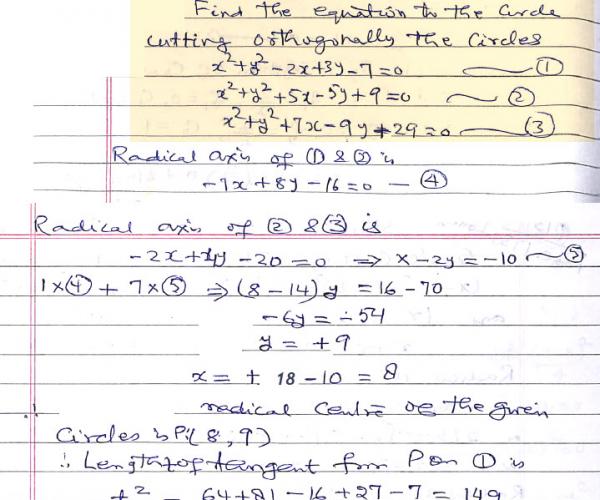 Find the equation to the circle
cutting orthogonally the circles
x²+y²-2x+3y-7=0 —— ①
x²+y²+5x-5y+9=0 —— ②
x²+y²+7x-9y+29=0 —— ③
Radical axis of ① & ② is
-7x+8y-16=0 — ④
Radical axis of ② & ③ is
-2x+4y-20=0 ⇒ x-2y=-10 — ⑤
1×④ + 7×⑤ ⇒ (8-14)y = 16-70
-6y = -54
y = +9
x = + 18-10 = 8
radical centre of the given
Circles is P:(8,9)
∴ Length of tangent from P on ① is
t² = 64+81-16+27-7 = 149